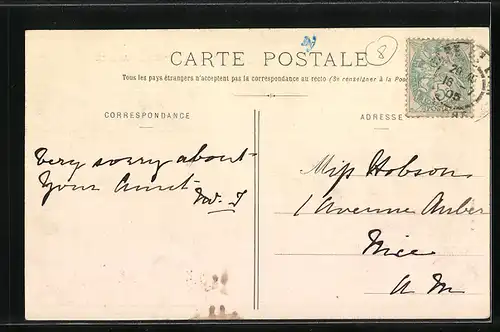 CARTE POSTALE
8
Tous les pays étrangers n'acceptent pas la correspondance au recto (Se renseigner à la Pos
CORRESPONDANCE
ADRESSE
Very sorry about
Your Aunt
Miss Hobson
1 Avenue Auber
Nice
A M
20
05